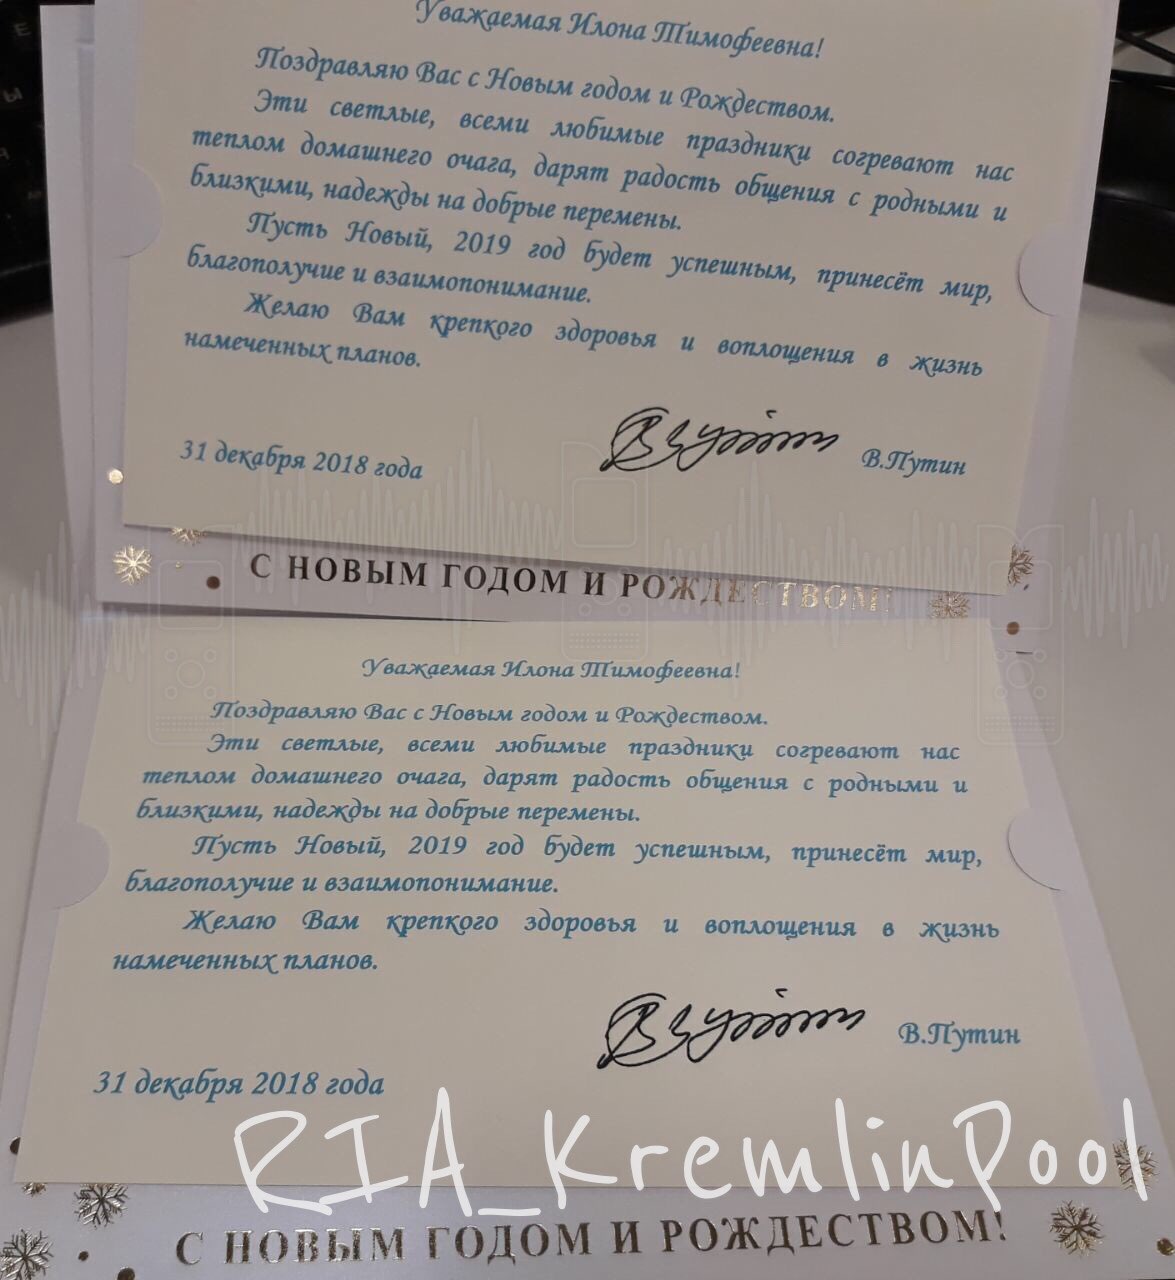 Уважаемая Илона Тимофеевна!
Поздравляю Вас с Новым годом и Рождеством.
Эти светлые, всеми любимые праздники согревают нас
теплом домашнего очага, дарят радость общения с родными и
близкими, надежды на добрые перемены.
Пусть Новый, 2019 год будет успешным, принесёт мир,
благополучие и взаимопонимание.
Желаю Вам крепкого здоровья и воплощения в жизнь
намеченных планов.
31 декабря 2018 года
В.Путин
С НОВЫМ ГОДОМ И РОЖДЕСТВОМ!
Уважаемая Илона Тимофеевна!
Поздравляю Вас с Новым годом и Рождеством.
Эти светлые, всеми любимые праздники согревают нас
теплом домашнего очага, дарят радость общения с родными и
близкими, надежды на добрые перемены.
Пусть Новый, 2019 год будет успешным, принесёт мир,
благополучие и взаимопонимание.
Желаю Вам крепкого здоровья и воплощения в жизнь
намеченных планов.
В.Путин
31 декабря 2018 года
RIA_KremlinPool
С НОВЫМ ГОДОМ И РОЖДЕСТВОМ!